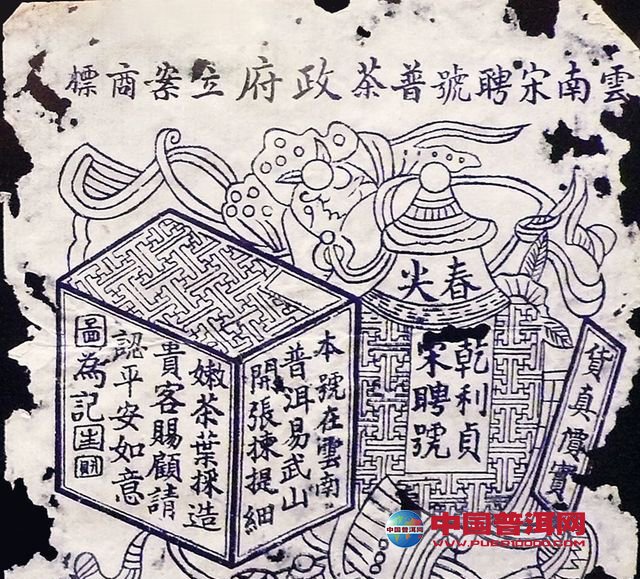 雲南宋聘號普茶政府立案商標
春尖
乾利貞
宋聘號
貨真價實
本號在雲南
普洱易武山
開張揀提細
嫩茶葉採造
貴客賜顧請
認平安如意
圖為記
中国普洱网
WWW.PUER10000.COM